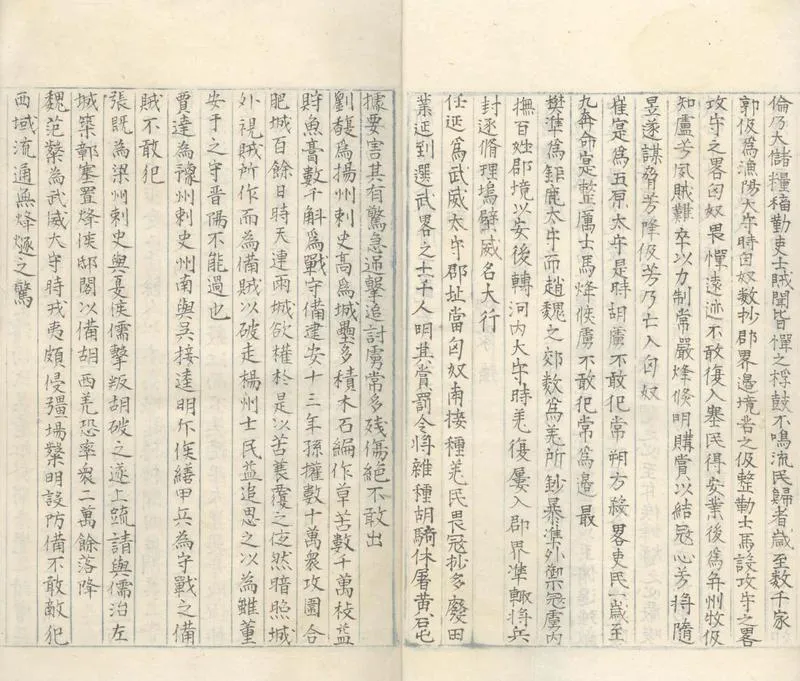 倫乃大儲糧穡勤吏士賊聞皆憚之桴鼓不鳴流民歸者歲至數千家
郭伋為漁陽大守時匈奴數抄郡界邊境苦之伋整勒士馬設攻守之畧
攻守之畧匈奴畏憚遠迹不敢復入塞民得安業後為并州牧伋
知盧芳夙賊難卒以力制常嚴烽候明購賞以結冠心芳將隨
昱遂謀脅芳降伋芳乃亡入匈奴
崔寔為五原太守是時胡虜不敢犯常朔方殺畧吏民一歲至
九奔命寔整厲士馬烽候虜不敢犯常為邊最
樊準為鉅鹿太守而趙魏之郊數為羌所鈔暴準外禦冠虜內
撫百姓郡境以安後轉河內大守時羌復屢入郡界準輙將兵
封逐脩理塢壁威名大行
任延為武威太守郡北當匈奴南接種羌民畏冠抄多廢田
業延到選武畧之士千人明其賞罰令將雜種胡騎休屠黄石屯
據要害其有驚急逆擊追討虜常多残傷絕不敢出
劉馥為揚州刺史高為城壘多積木石編作草苫數千萬枚益
貯魚膏數千斛為戰守備建安十三年孫權數十萬衆攻圍合
肥城百餘日時天連雨城欲權於是以苫蓑覆之夜然暗照城
外視賊所作而為備賊以破走揚州士民益追思之以為雖董
安于之守晉陽不能過也
賈逵為豫州刺史州南與吳接逵明斥候繕甲兵為守戰之備
賊不敢犯
張既為梁州刺史與夏侯儒擊叛胡破之遂上疏請與儒治左
城築鄣塞置烽候邸閣以備胡西羌恐率衆二萬餘落降
魏范粲為武威大守時戎夷頗侵彊場粲明設防備不敢敵犯
西域流通無烽燧之驚